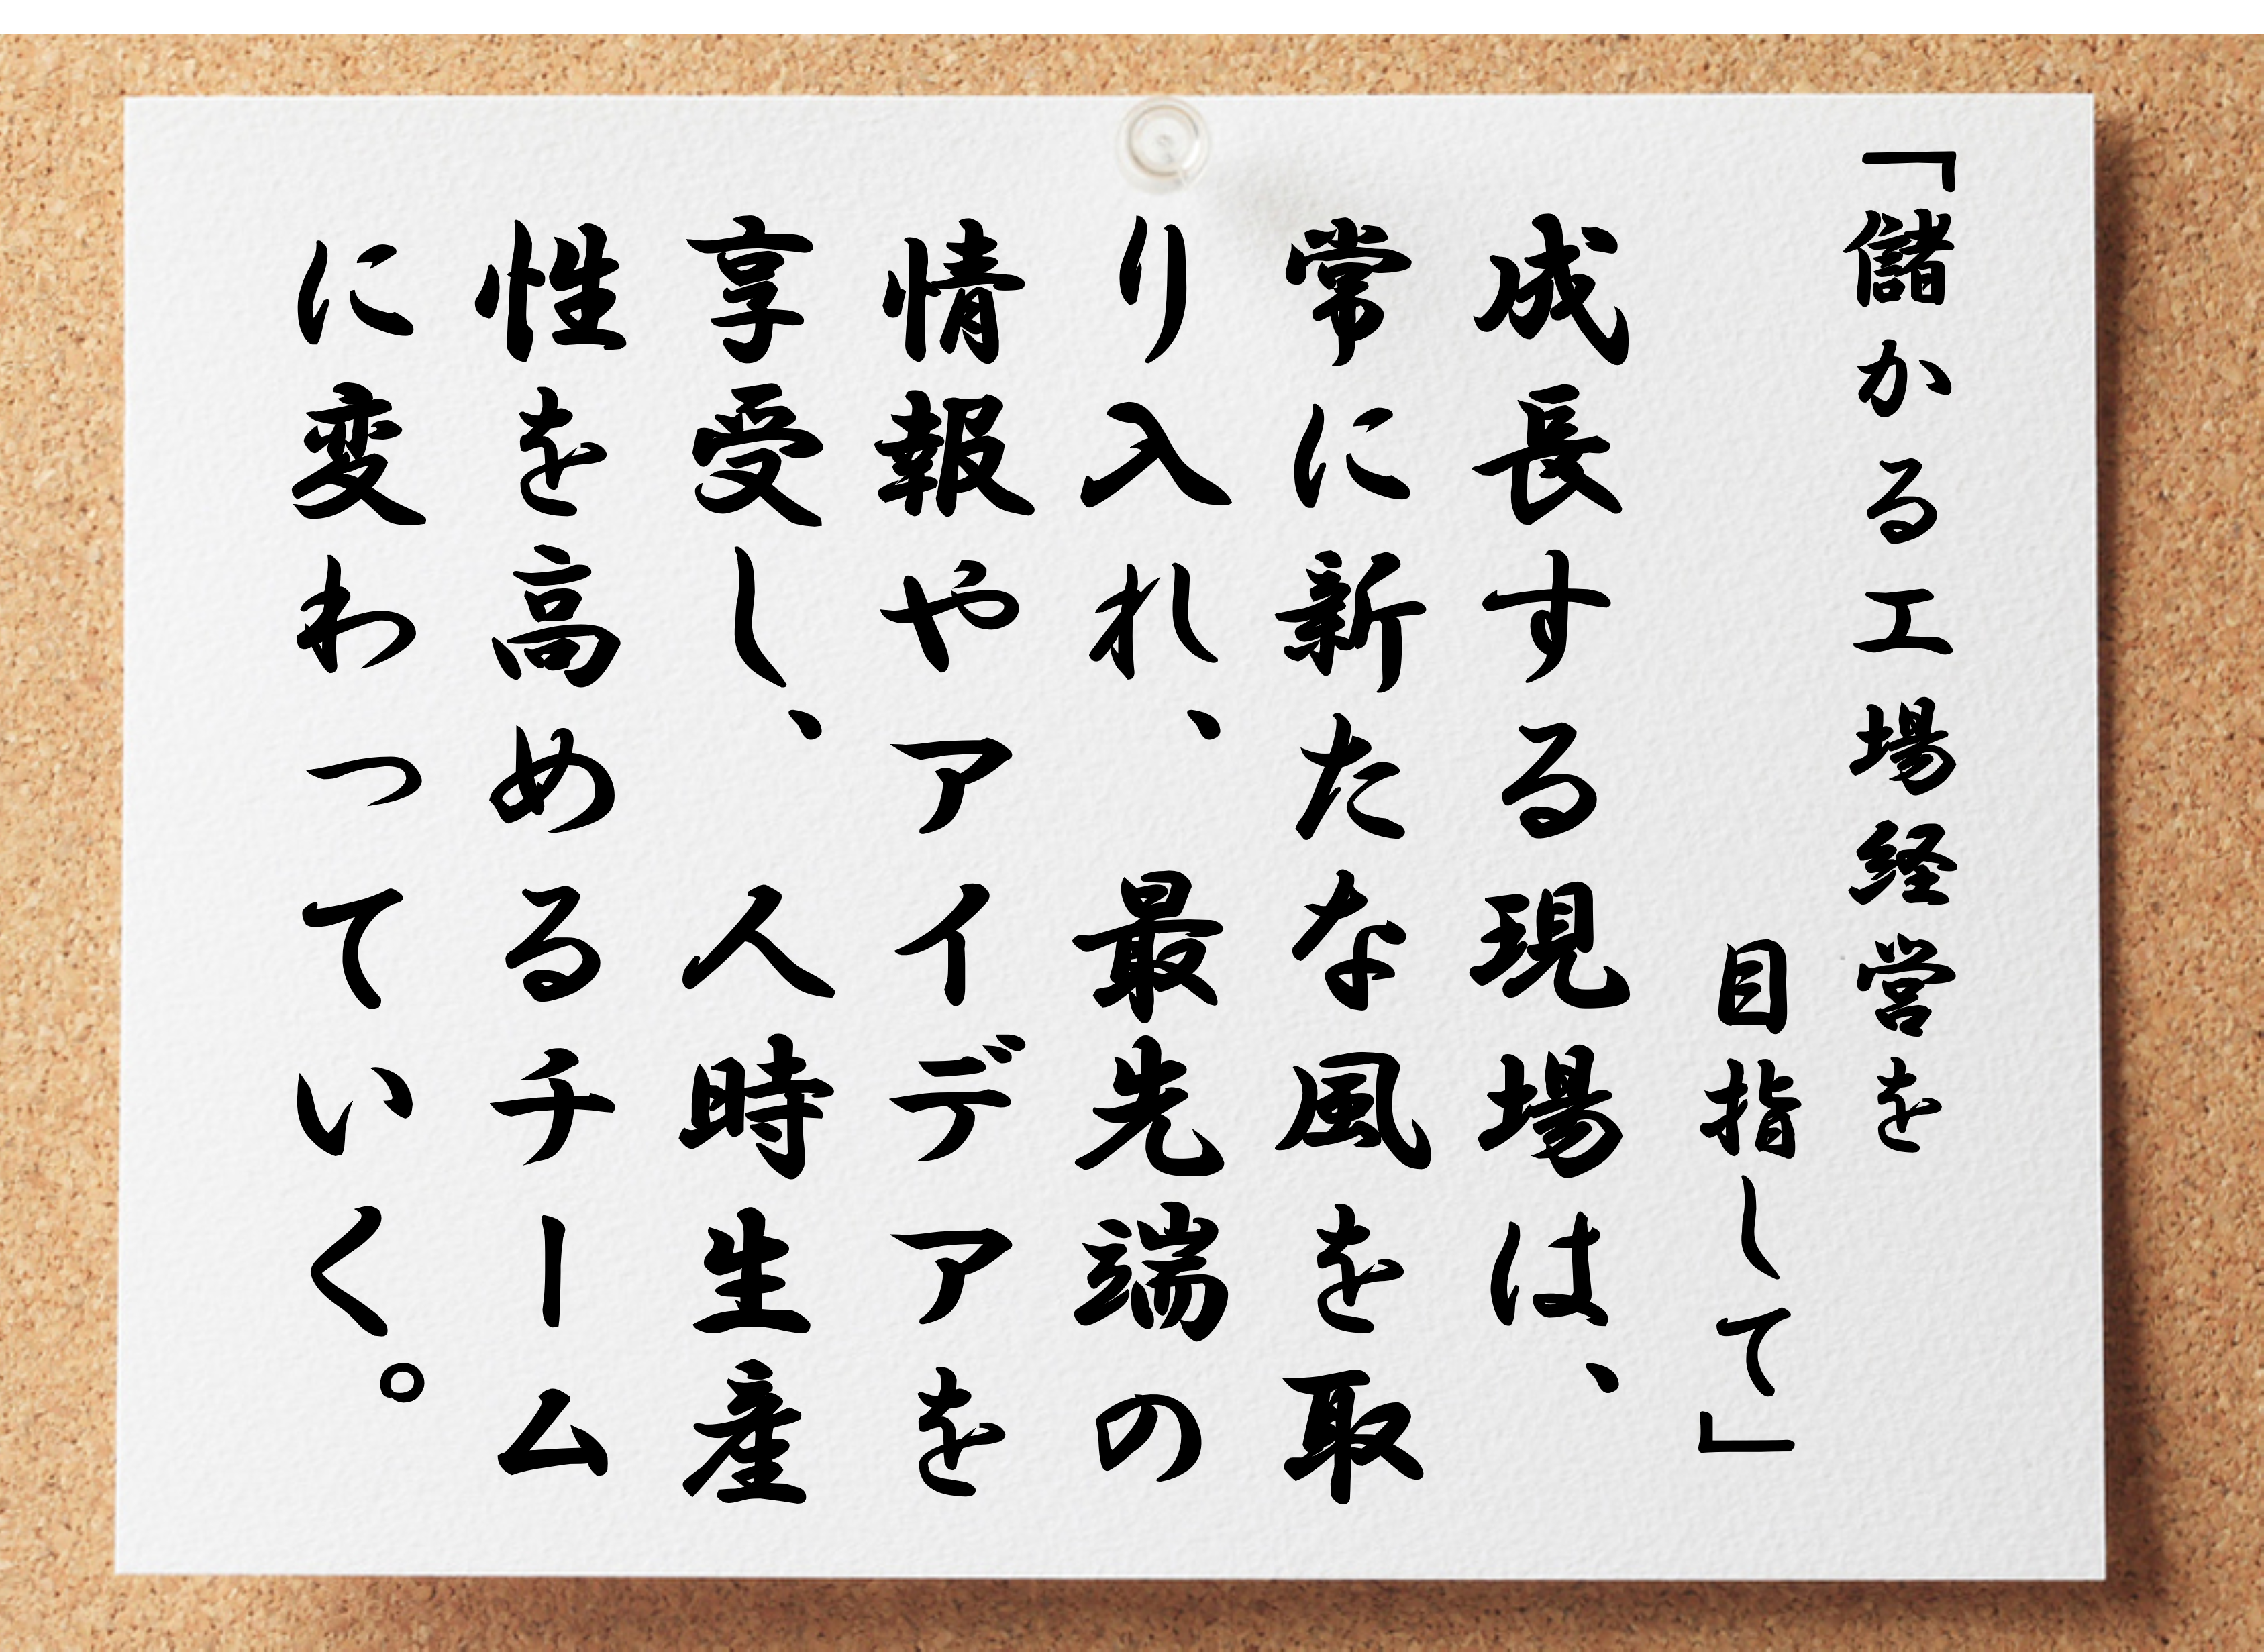 「儲かる工場経営を
目指して」
成長する現場は、
常に新たな風を取
り入れ、最先端の
情報やアイデアを
享受し、人時生産
性を高めるチーム
に変わっていく。